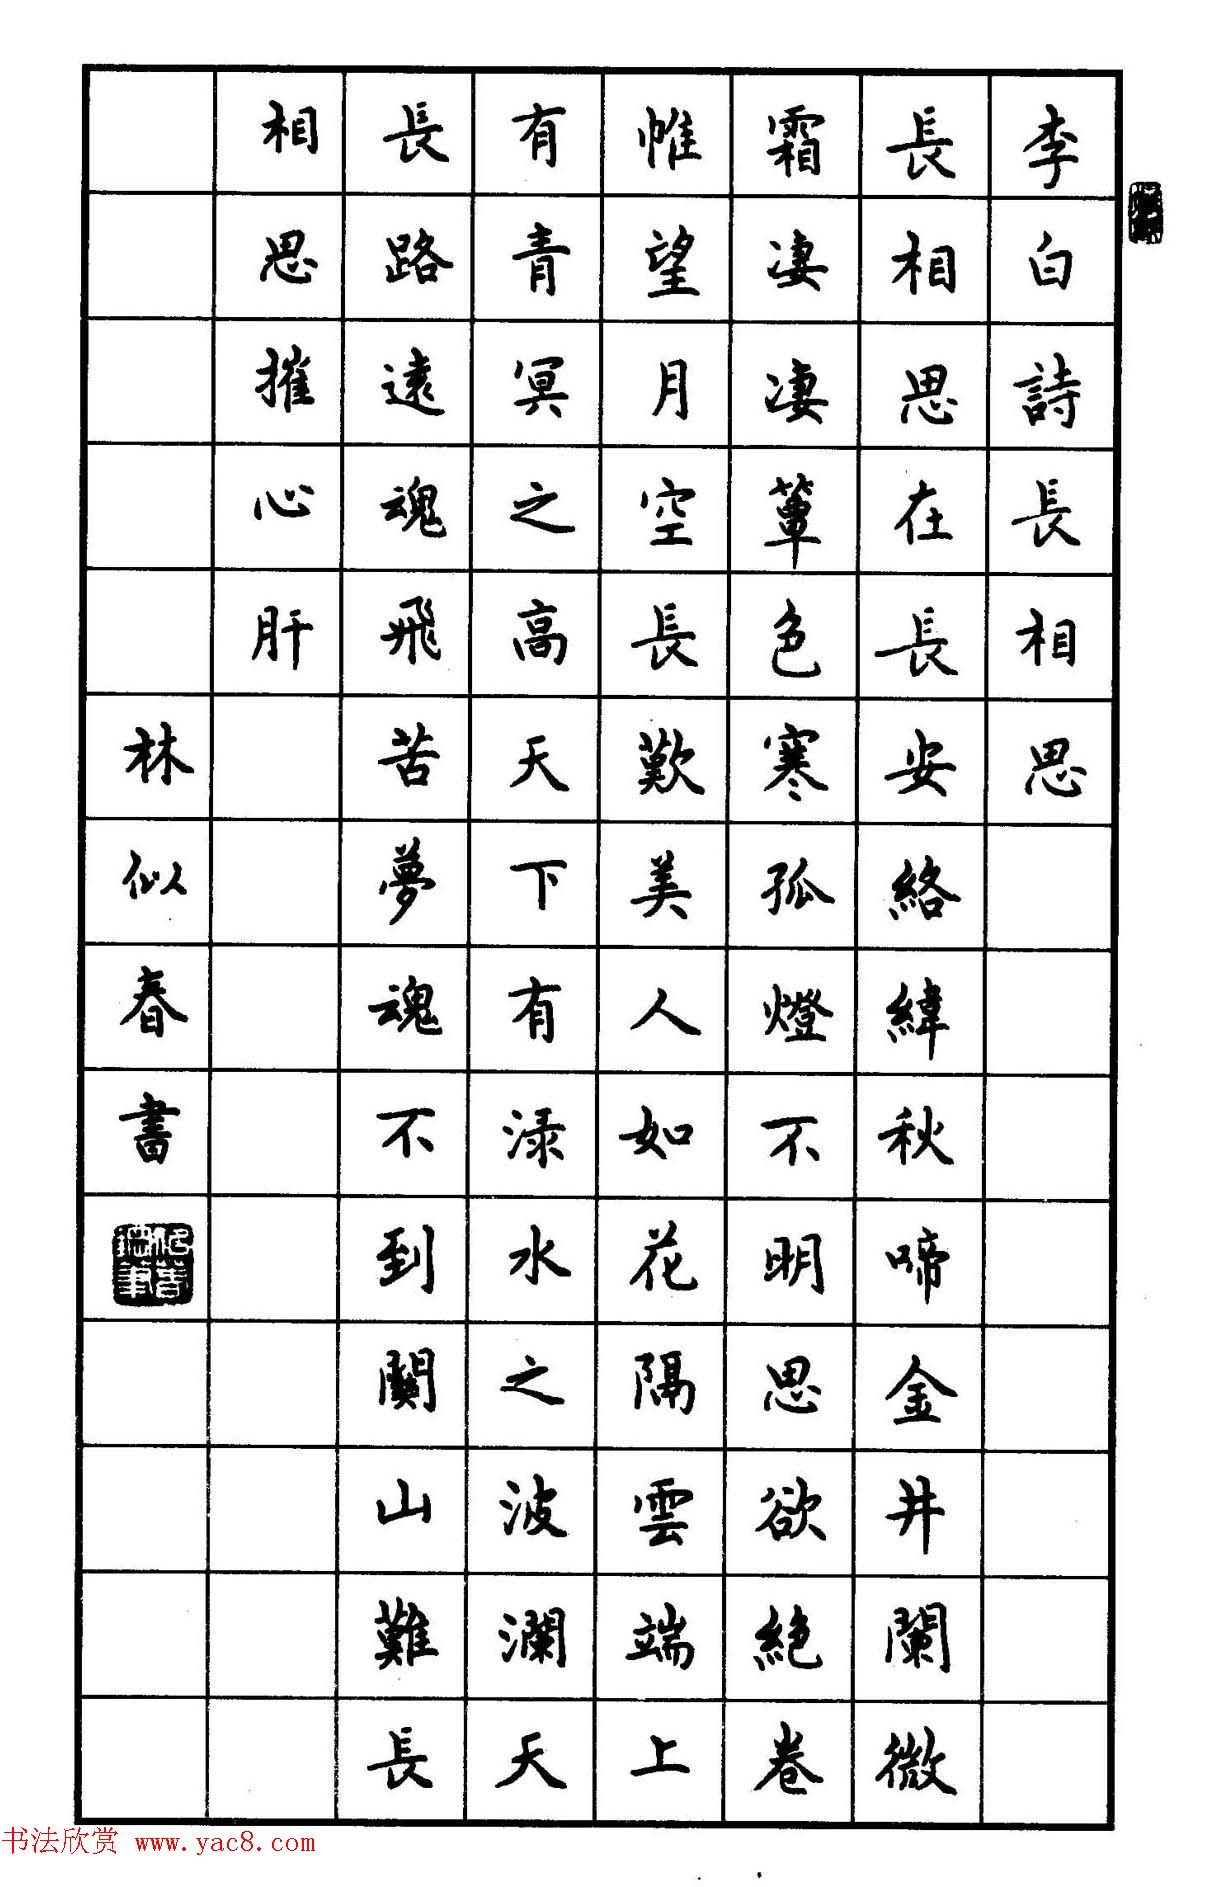 李白詩長相思
長相思在長安絡緯秋啼金井闌微
霜凄凄簟色寒孤燈不明思欲絕卷
帷望月空長歎美人如花隔雲端上
有青冥之高天下有淥水之波瀾天
長路遠魂飛苦夢魂不到關山難長
相思摧心肝
林似春書
书法欣赏 www.yac8.com